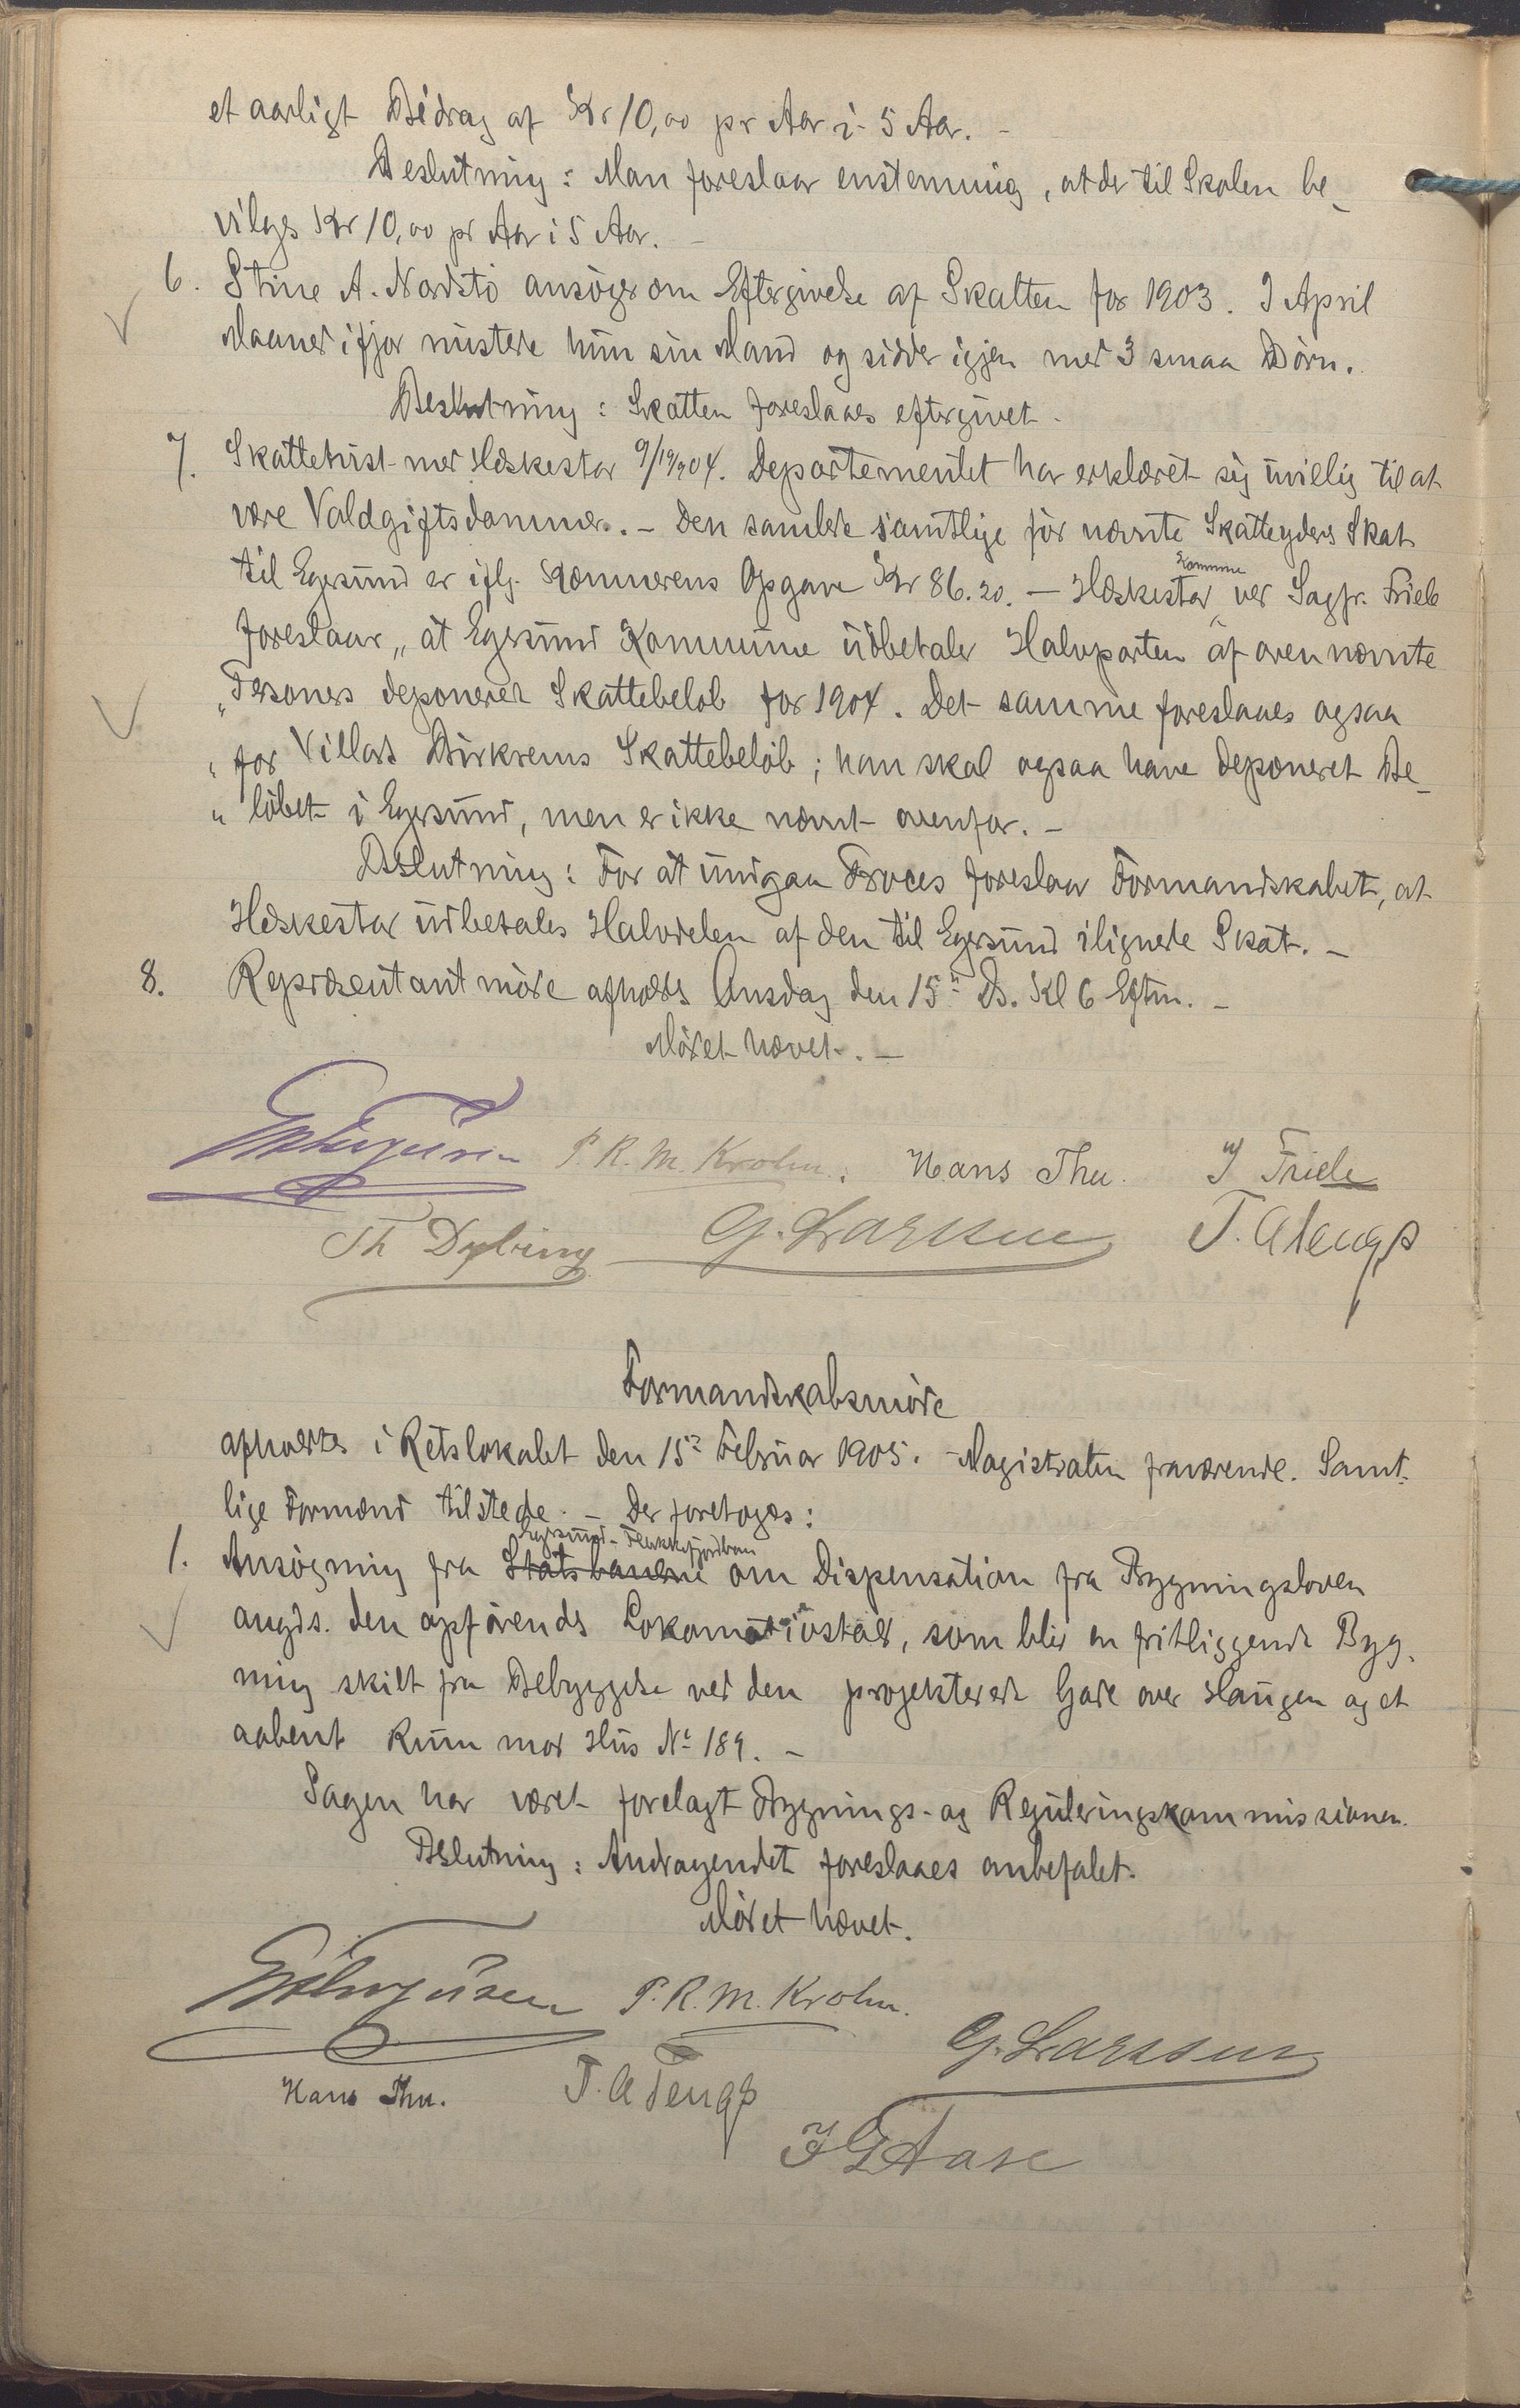 et aarligt Bidrag af Kr 10,00 pr Aar i 5 Aar. -
Beslutning: Man foreslaar enstemmig, at der til Skolen be-
vilges Kr 10,00 pr Aar i 5 Aar. -
6. Stine A. Nordstö ansöger om Eftergivelse af Skatten for 1903. I April
Maaned ifjor mistede hun sin Mand og sidder igjen med 3 smaa Börn.
Beslutning: Skatten foreslaaes eftergivet.
7. Skattetvist med Heskestad 9/1904. Departementet har erklæret sig uvillig til at
være Voldgiftsdommer. - Den samlede samtlige för nævnte Skatteyderes Skat
til Egersund er iflg. Kæmnerens Opgave Kr 86.20. - Heskestad Kommune ved Sagfr. Friele
foreslaar „at Egersund Kommune udbetaler Halvparten af ovennævnte
„Personers deponeret Skattebelöb for 1904. Det samme foreslaaes ogsaa
„for Villads Birkrems Skattebelöb; han skal ogsaa have deponeret Be-
„löbet i Egersund, men er ikke nævnt ovenfor. -
Beslutning: For at undgaa Proces foreslaar Formandskabet, at
Heskestad udbetales Halvdelen af den til Egersund ilignede Skat. -
8. Repræsentantmöde afholdes Onsdag den 15de Ds. Kl 6 Eftm. -
Mödet hævet. -
P. R. M. Krohn. Hans Thu. J Friele
Th Dybing G. Larssen T. A Tengs
Formandskabsmöde
afholdtes i Retslokalet den 15de Februar 1905. Magistraten fraværende. Samt-
lige Formænd tilstede. - Der foretoges:
Egersund-Flekkefjordban
1. Ansögning fra Statsbanerne om Dispensation fra Bygningsloven
angds. den opförendes Lokomotivstald, som blir en fritliggende Byg-
ning skilt fra Bebyggelse ved den projekterede Gade over Haugen og et
aabent Rum mod Hus No 189. -
Sagen har været forelagt Bygnings- og Reguleringskommissionen.
Beslutning: Andragendet foreslaaes anbefalet.
Mödet hævet.
P. R. M. Krohn.
G. Larssen
Hans Thu. T. A Tengs
J G Aase